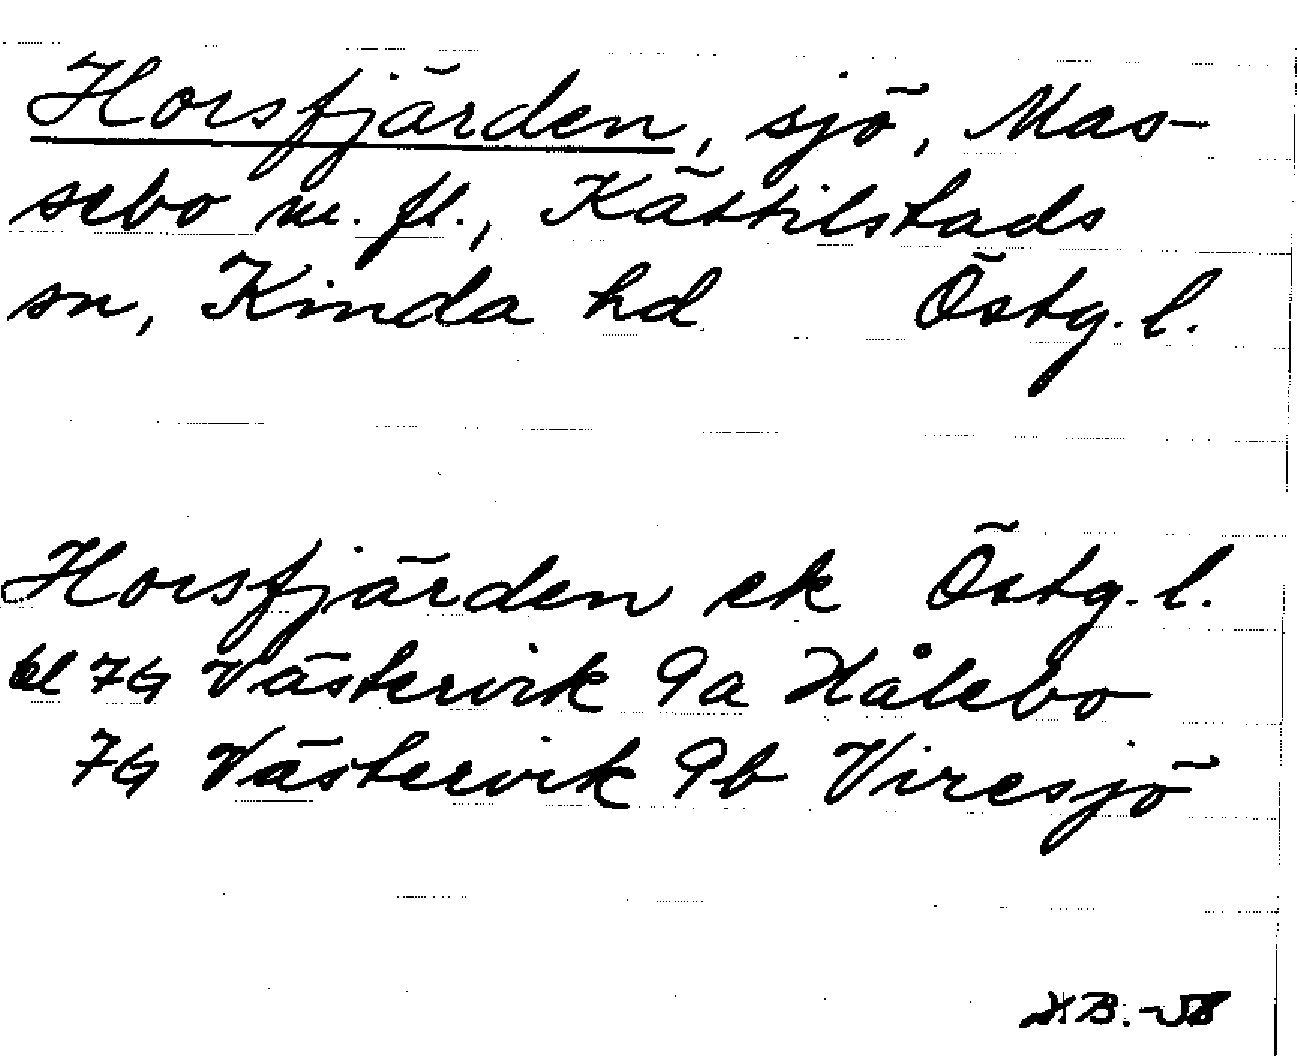 Horsfjärden, sjö, Mas-
sebo m. fl., Kättilstads
sn, Kinda hd Östg. l.
Horsfjärden ek Östg. l.
bl 7G Västervik 9a Hålebo
7G Västervik 9b Viresjö